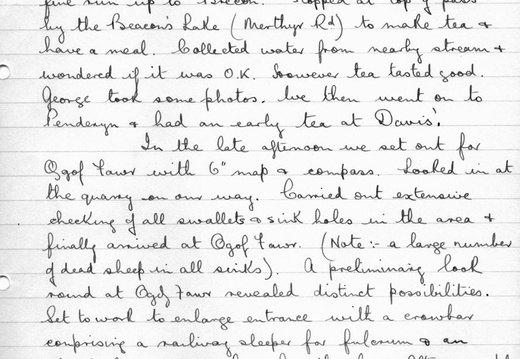 fine run up to Brecon. Stopped at top of pass
by the Beacons Lake (Merthyr Rd) to make tea &
have a meal. Collected water from nearby stream &
wondered if it was O.K. However tea tasted good.
George took some photos. We then went on to
Penderyn & had an early tea at Davis'.
In the late afternoon we set out for
Ogof Fawr with 6" map & compass. Looked in at
the quarry on our way. Carried out extensive
checking of all swallets & sink holes in the area &
finally arrived at Ogof Fawr. (Note:- a large number
of dead sheep in all sinks). A preliminary look
round at Ogof Fawr revealed distinct possibilities.
Set to work to enlarge entrance with a crowbar
comprising a railway sleeper for fulcrum & an